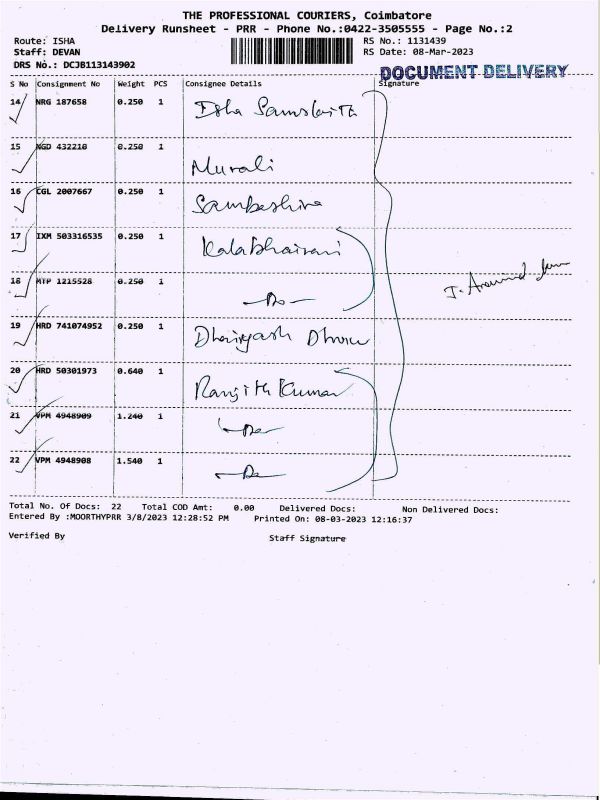 THE PROFESSIONAL COURIERS, Coimbatore
Delivery Runsheet - PRR - Phone No.:0422-3505555 - Page No.:2
Route: ISHA RS No.: 1131439
Staff: DEVAN RS Date: 08-Mar-2023
DRS No.: DCJB113143902
DOCUMENT DELIVERY
S No Consignment No Weight PCS Consignee Details Signature
14 NRG 187658 0.250 1 Isha Samskriti
15 NGD 432210 0.250 1 Murali
16 CGL 2007667 0.250 1 Sambeshiva
17 IXM 503316535 0.250 1 Kalabhairavi
18 MTP 1215528 0.250 1 -Do-
J. Aravind
19 HRD 741074952 0.250 1
20 HRD 50301973 0.640 1 Ranjith Kumar
21 VPM 4948909 1.240 1 -Do-
22 VPM 4948908 1.540 1 -Do-
Total No. Of Docs: 22 Total COD Amt: 0.00 Delivered Docs: Non Delivered Docs:
Entered By :MOORTHYPRR 3/8/2023 12:28:52 PM Printed On: 08-03-2023 12:16:37
Verified By Staff Signature